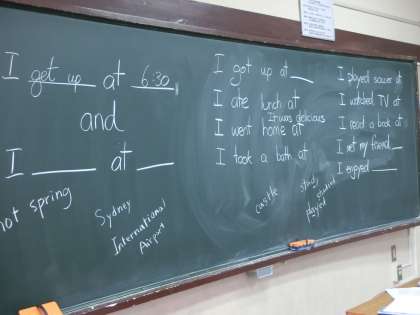 I get up at 6:30
and
I ____ at ____
hot spring
Sydney
International
Airport
I got up at ___
I ate lunch at
It was delicious
I went home at
I took a bath at
castle
study
studied
played
I played soccer at
I watched TV at
I read a book at
I met my friend __
I enjoyed ____